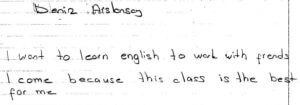 Deniz Arslansoy
I want to learn english to work with frends
I come because this class is the best
for me